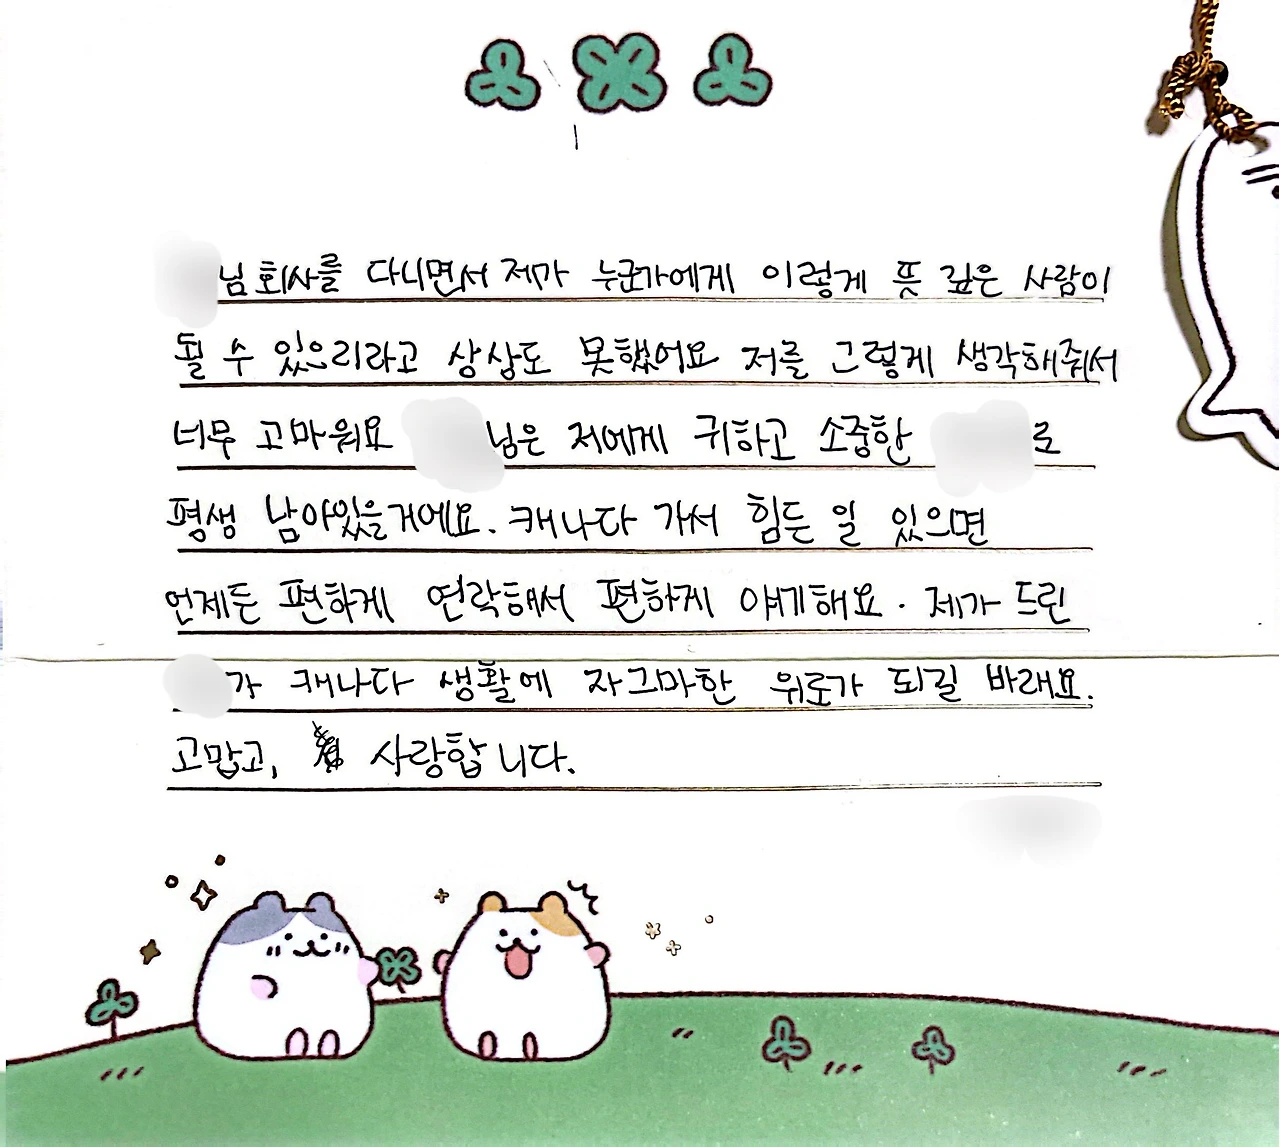 님 회사를 다니면서 제가 누군가에게 이렇게 뜻 깊은 사람이
될 수 있으리라고 상상도 못했어요 저를 그렇게 생각해줘서
너무 고마워요 님은 저에게 귀하고 소중한 로
평생 남아있을거에요. 캐나다 가서 힘든 일 있으면
언제든 편하게 연락해서 편하게 얘기해요. 제가 드린
가 캐나다 생활에 자그마한 위로가 되길 바래요.
고맙고, 사랑합니다.